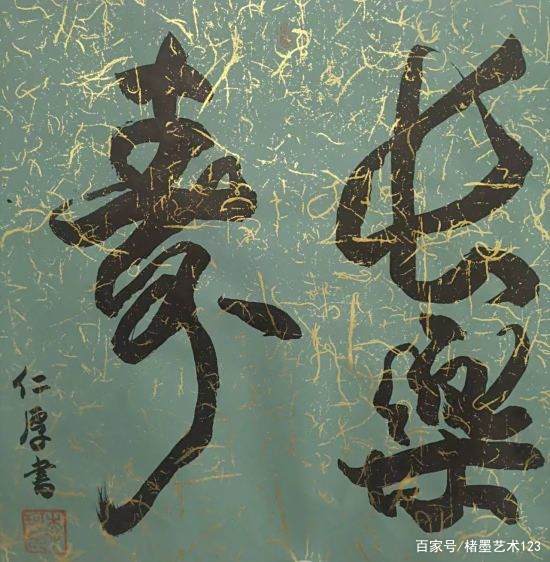 長樂
壽
仁厚書
百家号/楮墨艺术123